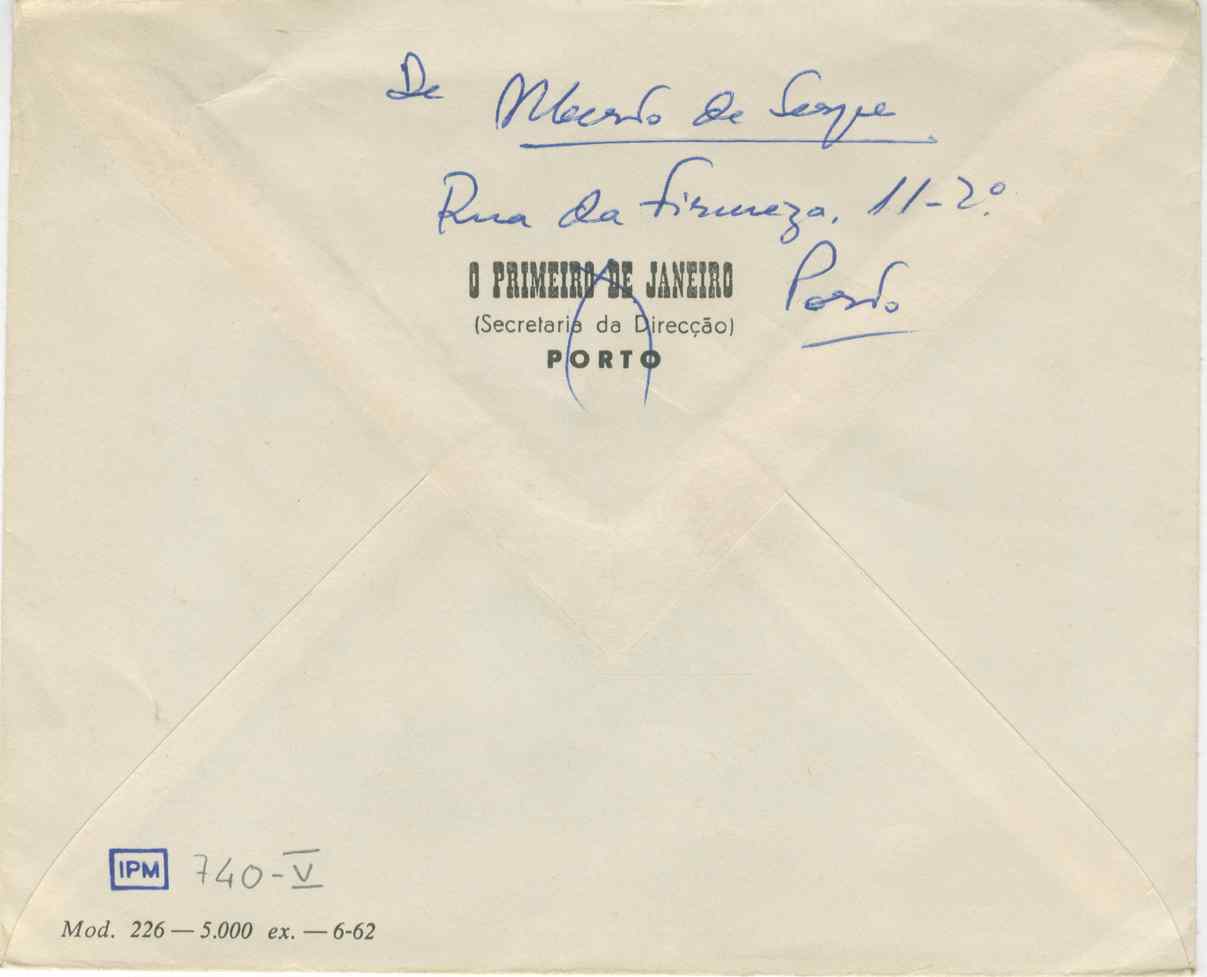 De
de Serpe
Rua da Firmeza, 11-2º
O PRIMEIRO DE JANEIRO
Porto
(Secretaria da Direcção)
PORTO
IPM 740-V
Mod. 226 — 5.000 ex. — 6-62